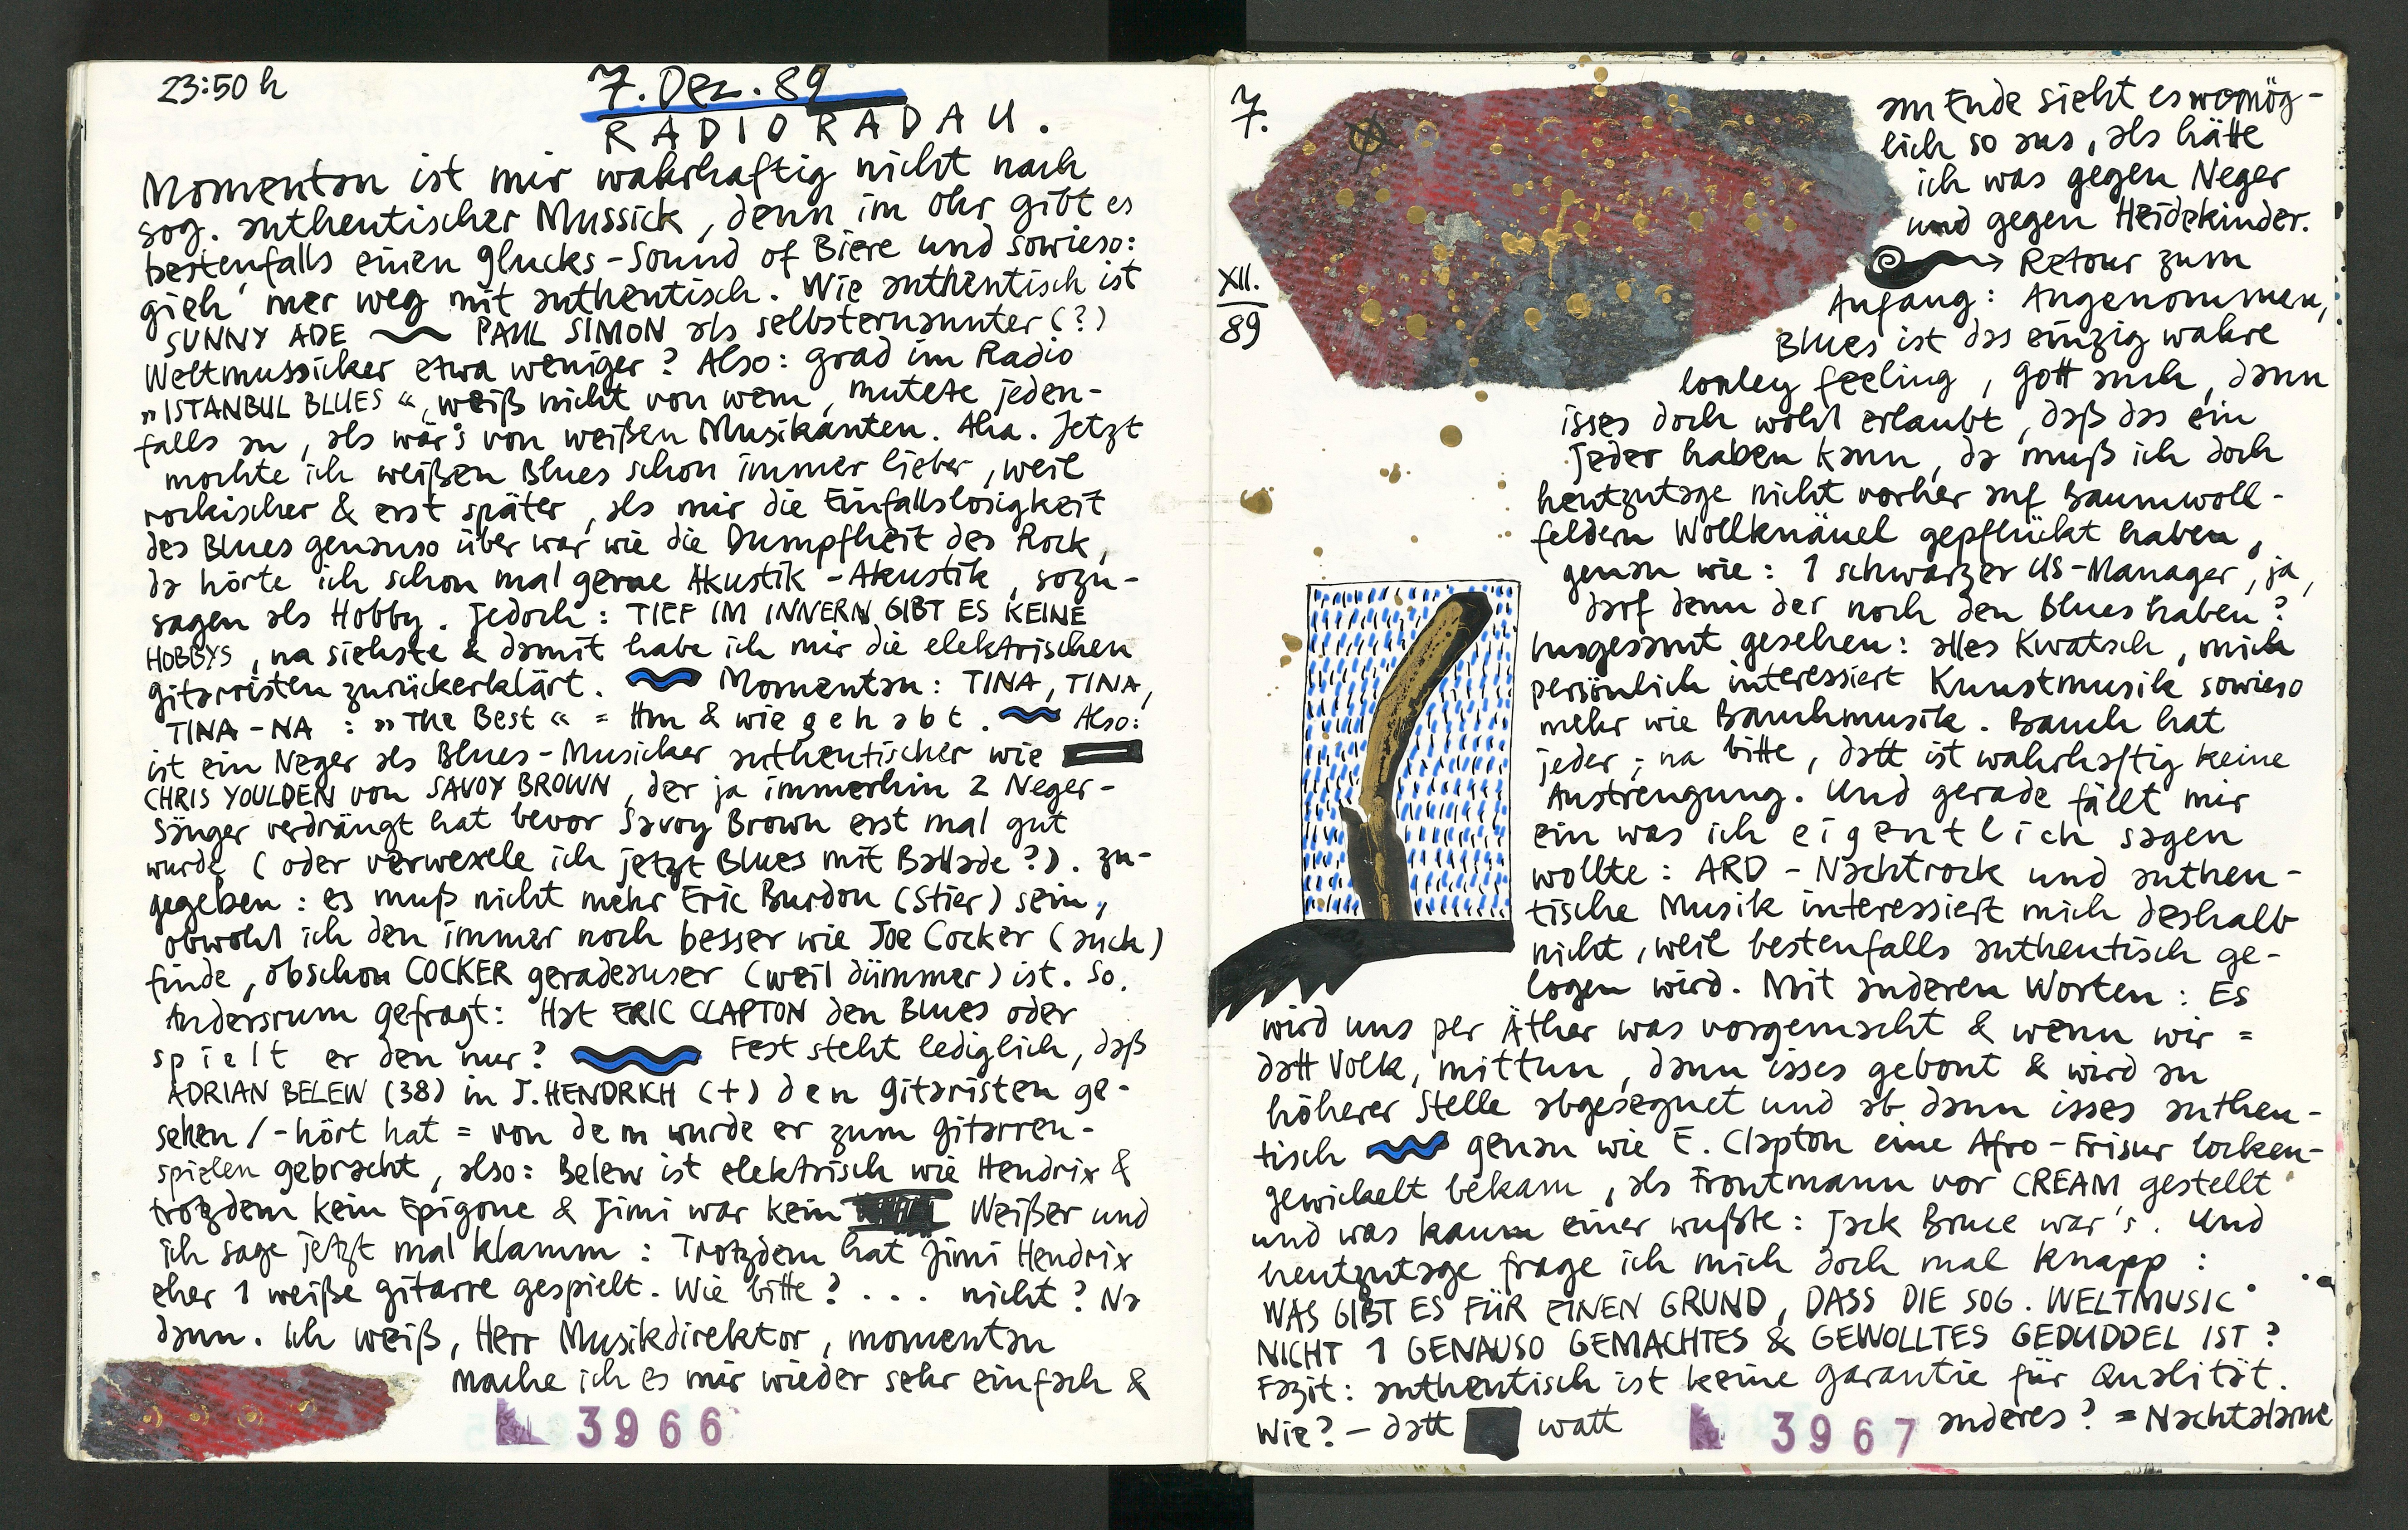 23:50 h
7. Dez. 89
RADIORADAU.
Momentan ist mir wahrhaftig nicht nach
sog. authentischer Mussick, denn im Ohr gibt es
bestenfalls einen glucks-Sound of Biere und sowieso:
gieh' mer weg mit authentisch. Wie authentisch ist
SUNNY ADE ~ PAUL SIMON als selbsternannter (?)
Weltmussicker etwa weniger? Also: grad im Radio
„ISTANBUL BLUES“, weiß nicht von wem, mutete jeden-
falls an, als wär's von weißen Musikanten. Aha. Jetzt
mochte ich weißen Blues schon immer lieber, weil
rockischer & erst später, als mir die Einfallslosigkeit
des Blues genauso über war wie die Dumpfheit des Rock,
da hörte ich schon mal gerne Akustik-Akustik, sozu-
sagen als Hobby. Jedoch: TIEF IM INNERN GIBT ES KEINE
HOBBYS, na siehste & damit habe ich mir die elektrischen
gitarristen zurückerklärt. Momentan: TINA, TINA,
TINA-NA : „The Best“ = Hm & wie gehabt. Also:
ist ein Neger als Blues-Musicker authentischer wie
CHRIS YOULDEN von SAVOY BROWN, der ja immerhin 2 Neger-
sänger verdrängt hat bevor Savoy Brown erst mal gut
wurde (oder verwexele ich jetzt Blues mit Ballade?). zu-
gegeben: es muß nicht mehr Eric Burdon (Stier) sein,
obwohl ich den immer noch besser wie Joe Cocker (auch)
finde, obschon COCKER geradeauser (weil dümmer) ist. So.
Andersrum gefragt: Hat ERIC CLAPTON den Blues oder
spielt er den nur? Fest steht lediglich, daß
ADRIAN BELEW (38) in J. HENDRICH (+) den gitaristen ge-
sehen/-hört hat = von dem wurde er zum gitarren-
spielen gebracht, also: Belew ist elektrisch wie Hendrix &
trotzdem kein Epigone & Jimi war kein Weißer und
ich sage jetzt mal klamm: Trotzdem hat Jimi Hendrix
eher 1 weiße gitarre gespielt. Wie bitte? ... nicht? Na
dann. Ich weiß, Herr Musikdirektor, momentan
mache ich es mir wieder sehr einfach &
3966
7.
XII.
89
am Ende sieht es womög-
lich so aus, als hätte
ich was gegen Neger
und gegen Heidekinder.
→ Retour zum
Anfang: Angenommen,
Blues ist das einzig wahre
lonley feeling, gott auch, dann
isses doch wohl erlaubt, daß das ein
jeder haben kann, da muß ich doch
heutzutage nicht vorher auf Baumwoll-
feldern Wollknäuel gepflückt haben,
genau wie: 1 schwarzer US-Manager, ja,
darf denn der noch den Blues haben?
Insgesamt gesehen: alles Kwatsch, mich
persönlich interessiert Kunstmusik sowieso
mehr wie Bauchmusik. Bauch hat
jeder; na bitte, datt ist wahrhaftig keine
Anstrengung. Und gerade fällt mir
ein was ich eigentlich sagen
wollte: ARD-Nachtrock und authen-
tische Musik interessiert mich deshalb
nicht, weil bestenfalls authentisch ge-
logen wird. Mit anderen Worten: Es
wird uns per Äther was vorgemacht & wenn wir =
datt Volk, mittun, dann isses gebont & wird an
höherer Stelle abgesegnet und ab dann isses authen-
tisch genau wie E. Clapton eine Afro-Frisur locken-
gewickelt bekam, als Frontmann vor CREAM gestellt
und was kaum einer wußte: Jack Bruce war's. Und
heutzutage frage ich mich doch mal knapp:
WAS GIBT ES FÜR EINEN GRUND, DASS DIE SOG. WELTMUSIC
NICHT 1 GENAUSO GEMACHTES & GEWOLLTES GEDUDDEL IST?
Fazit: authentisch ist keine Garantie für Qualität.
Wie? – datt watt anderes? = Nachtalarme
3967